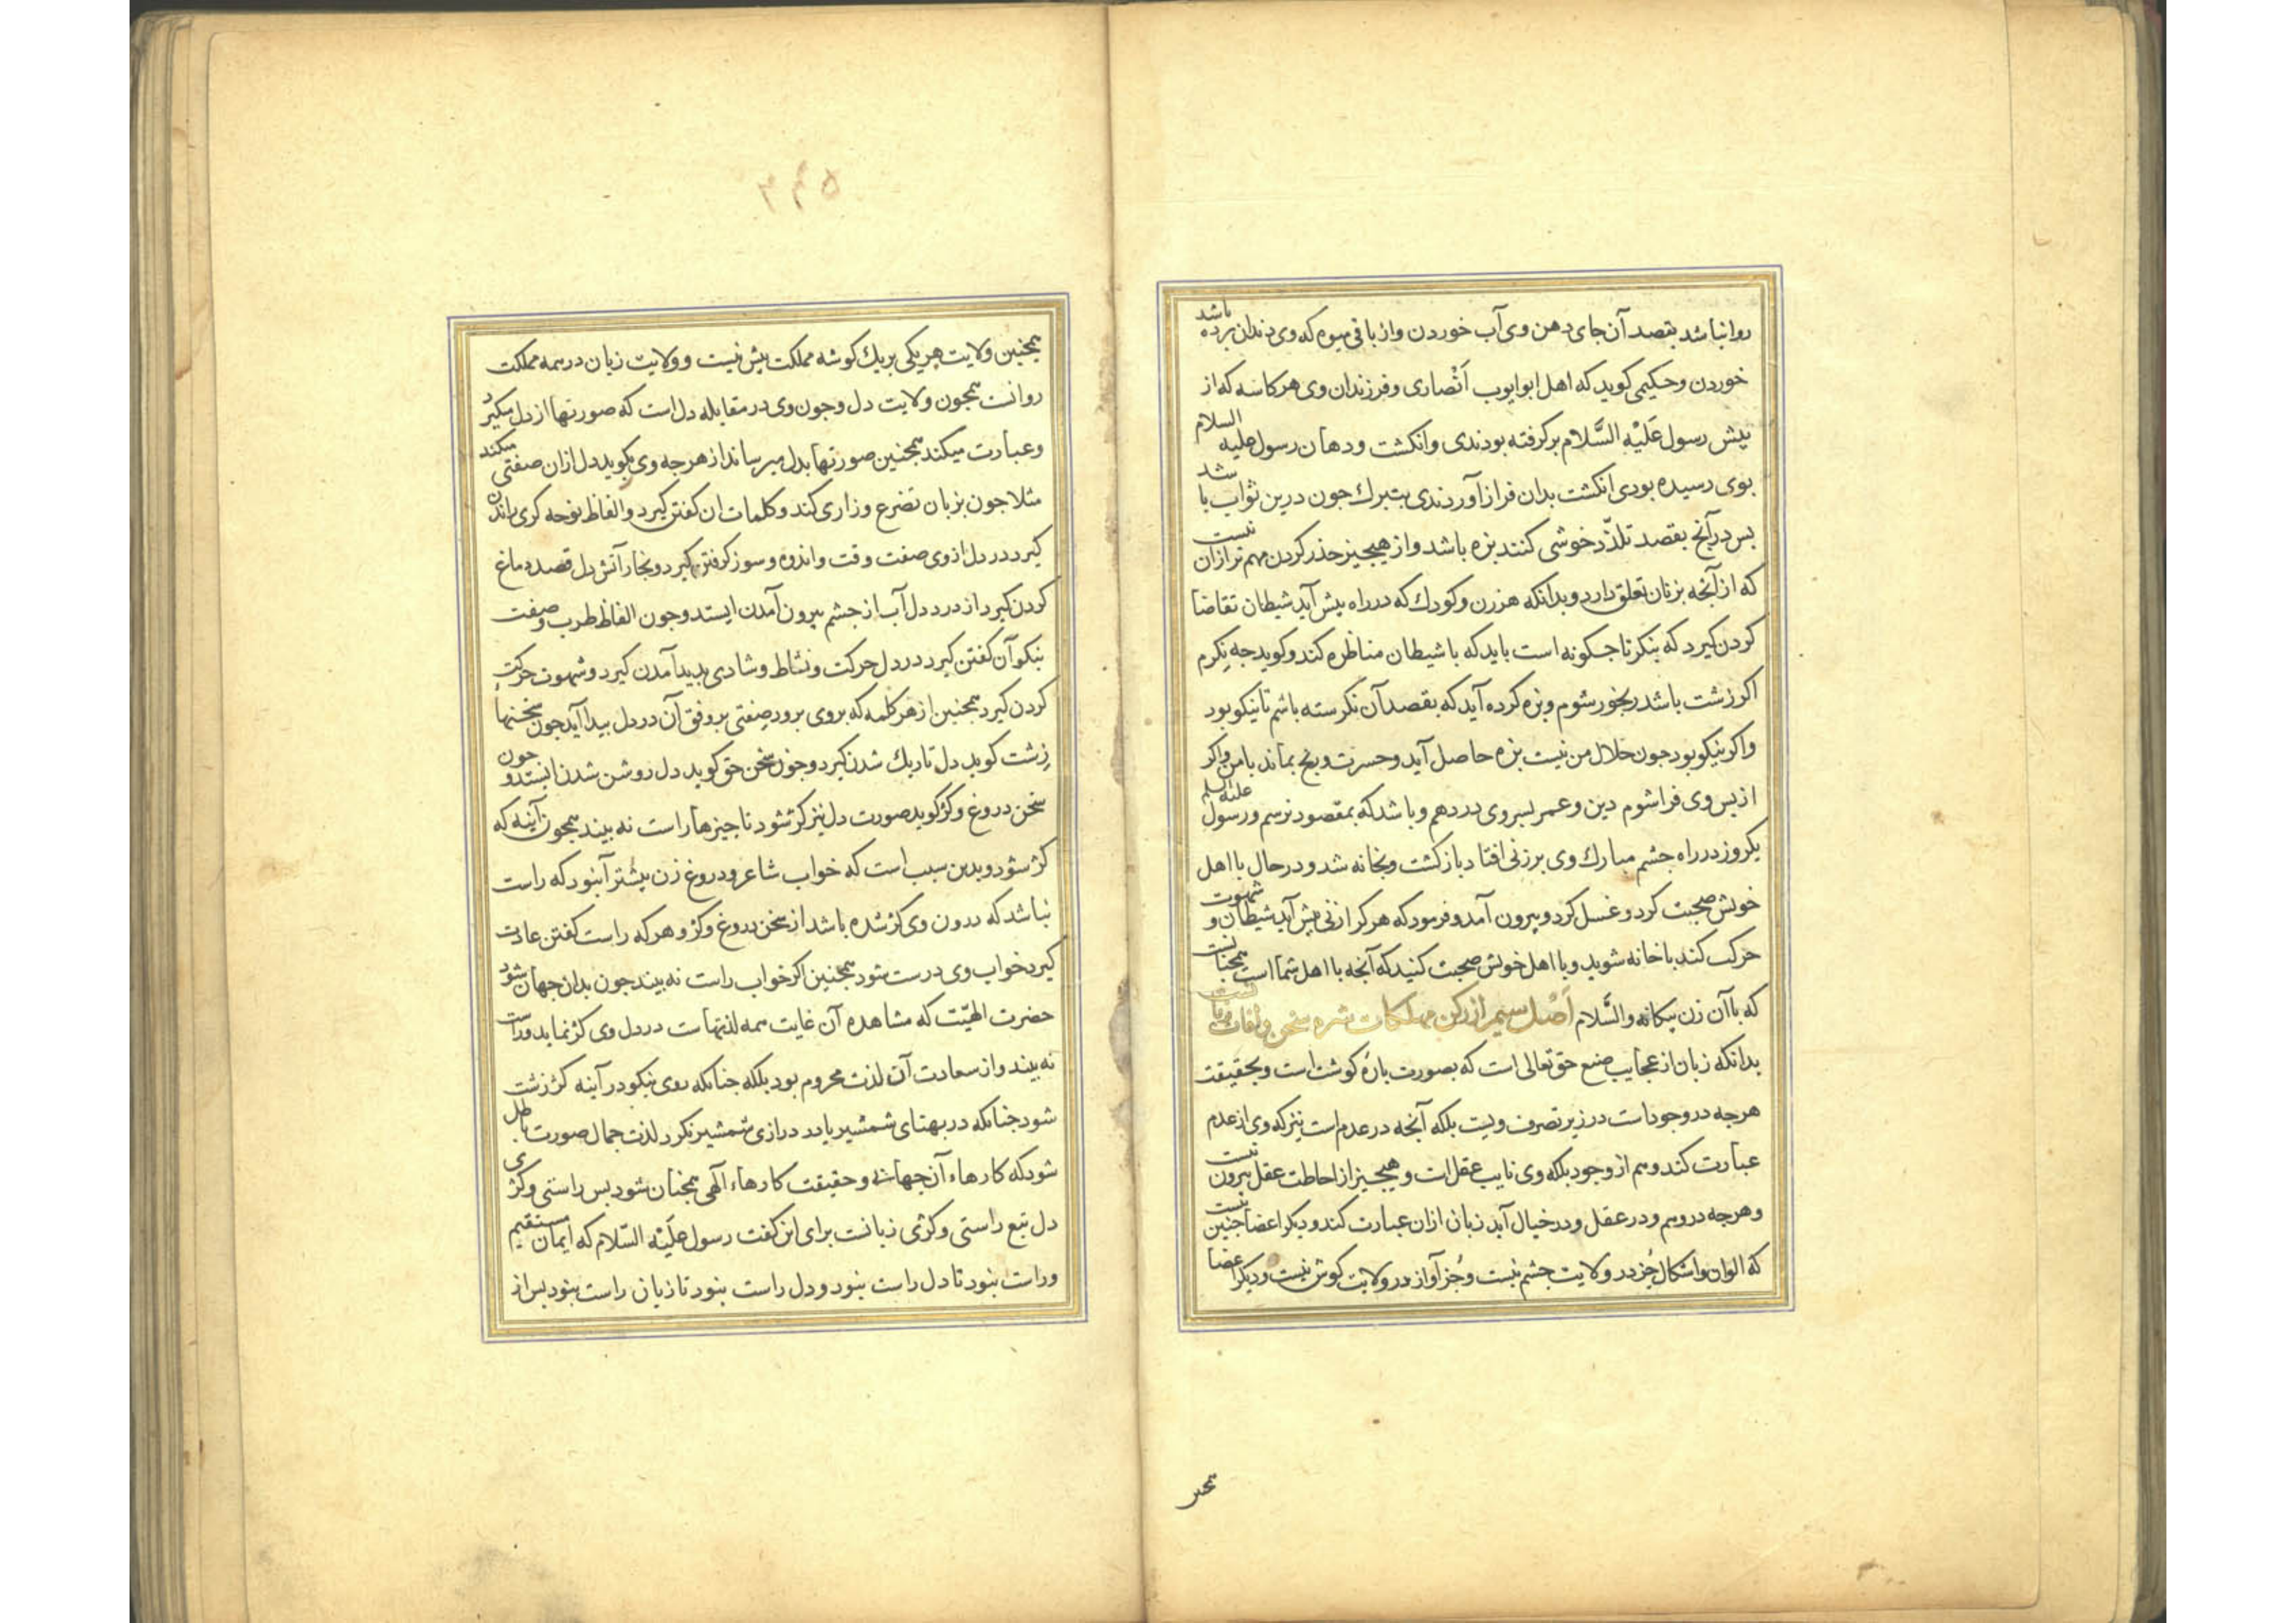 روا نباشد بقصد آن جای دهن وی آب خوردن و از باقی میوه که وی دندان برده باشد
خوردن و حکیمی کوید که اهل ابو ایوب اَنْصاری و فرزندان وی هر کاسه که از
پیش رسول عَلَیْهِ السَّلام برکرفته بودندی و انکشت و دهان رسول علیه السلام
بوی رسیده بودی انکشت بدان فراز آوردندی بتبرك جون درین ثواب باشد
بس در آنج بقصد تلذّذ و خوشی کنند بزه باشد و از هیجیز حذر کردن مهم تر از ان نیست
که از آنجه بزنان تعلق دارد و بدانکه هر زن و کودك که در راه بیش آید شیطان تقاضا
کردن کیرد که بنکر تا جکونه است باید که با شیطان مناظره کند و کوید جه نکرم
اکر زشت باشد رنجور شوم و بزه کرده آید که بقصد آن نکرسته باشم تا نیکو بود
و اکر نیکو بود جون حلال من نیست بزه حاصل آید و حسرت و رنج بماند با من و اکر
از بس وی فرا شوم دین و عمر بسر وی در دهم و باشد که بمقصود نرسم و رسول علیه السلم
یکروز در راه جشم مبارك وی بر زنی افتاد باز کشت و بخانه شد و در حال با اهل
خویش صحبت کرد و غسل کرد و بیرون آمد و فرمود که هر کرا زنی بیش آید شیطان و شهوت
حرکت کند با خانه شوید و با اهل خویش صحبت کنید که آنجه با اهل شما است همجنانست
که با آن زن بیکانه والسَّلام اَصْل سیم از رکن مهلکات شره سخن و آفات زبانست
بدانکه زبان از عجایب صنع حق تعالی است که بصورت بارهٔ کوشت است و بحقیقت
هرجه در وجودات در زیر تصرف ویست بلکه آنجه در عدم است نیز که وی از عدم
عبارت کند و هم از وجود بلکه وی نایب عقل ات و هیجیز از احاطت عقل بیرون نیست
و هرجه در وهم و در عقل و در خیال آید زبان ازان عبارت کند و دیکر اعضا جنین نیست
که الوان و اشکال جُز در ولایت جشم نیست و جُز آواز در ولایت کوش نیست و دیکر اعضا
همجنین
۳۴۵
همجنین ولایت هر یکی بر یك کوشه مملکت بیش نیست و ولایت زبان در همه مملکت
روانست همجون ولایت دل و جون وی در مقابله دل است که صورتها از دل میکیرد
و عبارت میکند همجنین صورتها بدل میرساند از هرجه وی بکوید دل ازان صفتی میکند
مثلا جون بزبان تضرع و زاری کند و کلمات ان کفتن کیرد و الفاظ نوحه کری راندن
کیرد در دل از وی صفت وقت و اندوه و سوز کرفتن کیرد و بخار آتش دل قصد دماغ
کردن کیرد از درد دل آب از جشم بیرون آمدن ایستد و جون الفاظ طرب و صفت
نیکو آن کفتن کیرد در دل حرکت و نشاط و شادی بدید آمدن کیرد و شهوت حرکت
کردن کیرد همجنین از هر کلمه که بر وی برود صفتی بر وفق آن در دل بیدا آید جون سخنها
زشت کوید دل تاریك شدن کیرد و جون سخن حق کوید دل روشن شدن ایستد و جون
سخن دروغ و کژ کوید صورت دل نیز کژ شود تا جیزها راست نه بیند همجون آینه که
کژ شود و بدین سبب است که خواب شاعر و دروغ زن بیشتر آن بود که راست
نباشد که درون وی کژ شده باشد از سخن دروغ و کژ و هر که راست کفتن عادت
کیرد خواب وی درست شود همجنین اکر خواب راست نه بیند جون بدان جهان شود
حضرت الهیّت که مشاهده آن غایت همه لذتهاست در دل وی کژ نماید و راست
نه بیند و از سعادت آن لذت محروم بود بلکه جنانکه روی نیکو در آینه کژ زشت
شود جنانکه در بهنای شمشیر یا در درازی شمشیر نکرد لذت جمال صورت باطل
شود که کارهاء آن جهانی و حقیقت کارهاء آلهی همجنان شود بس راستی و کژی
دل تبع راستی و کژی زبانست برای این کفت رسول عَلَیْهِ السّلام که ایمان مستقیم
و راست نبود تا دل راست نبود و دل راست نبود تا زبان راست نبود بس از